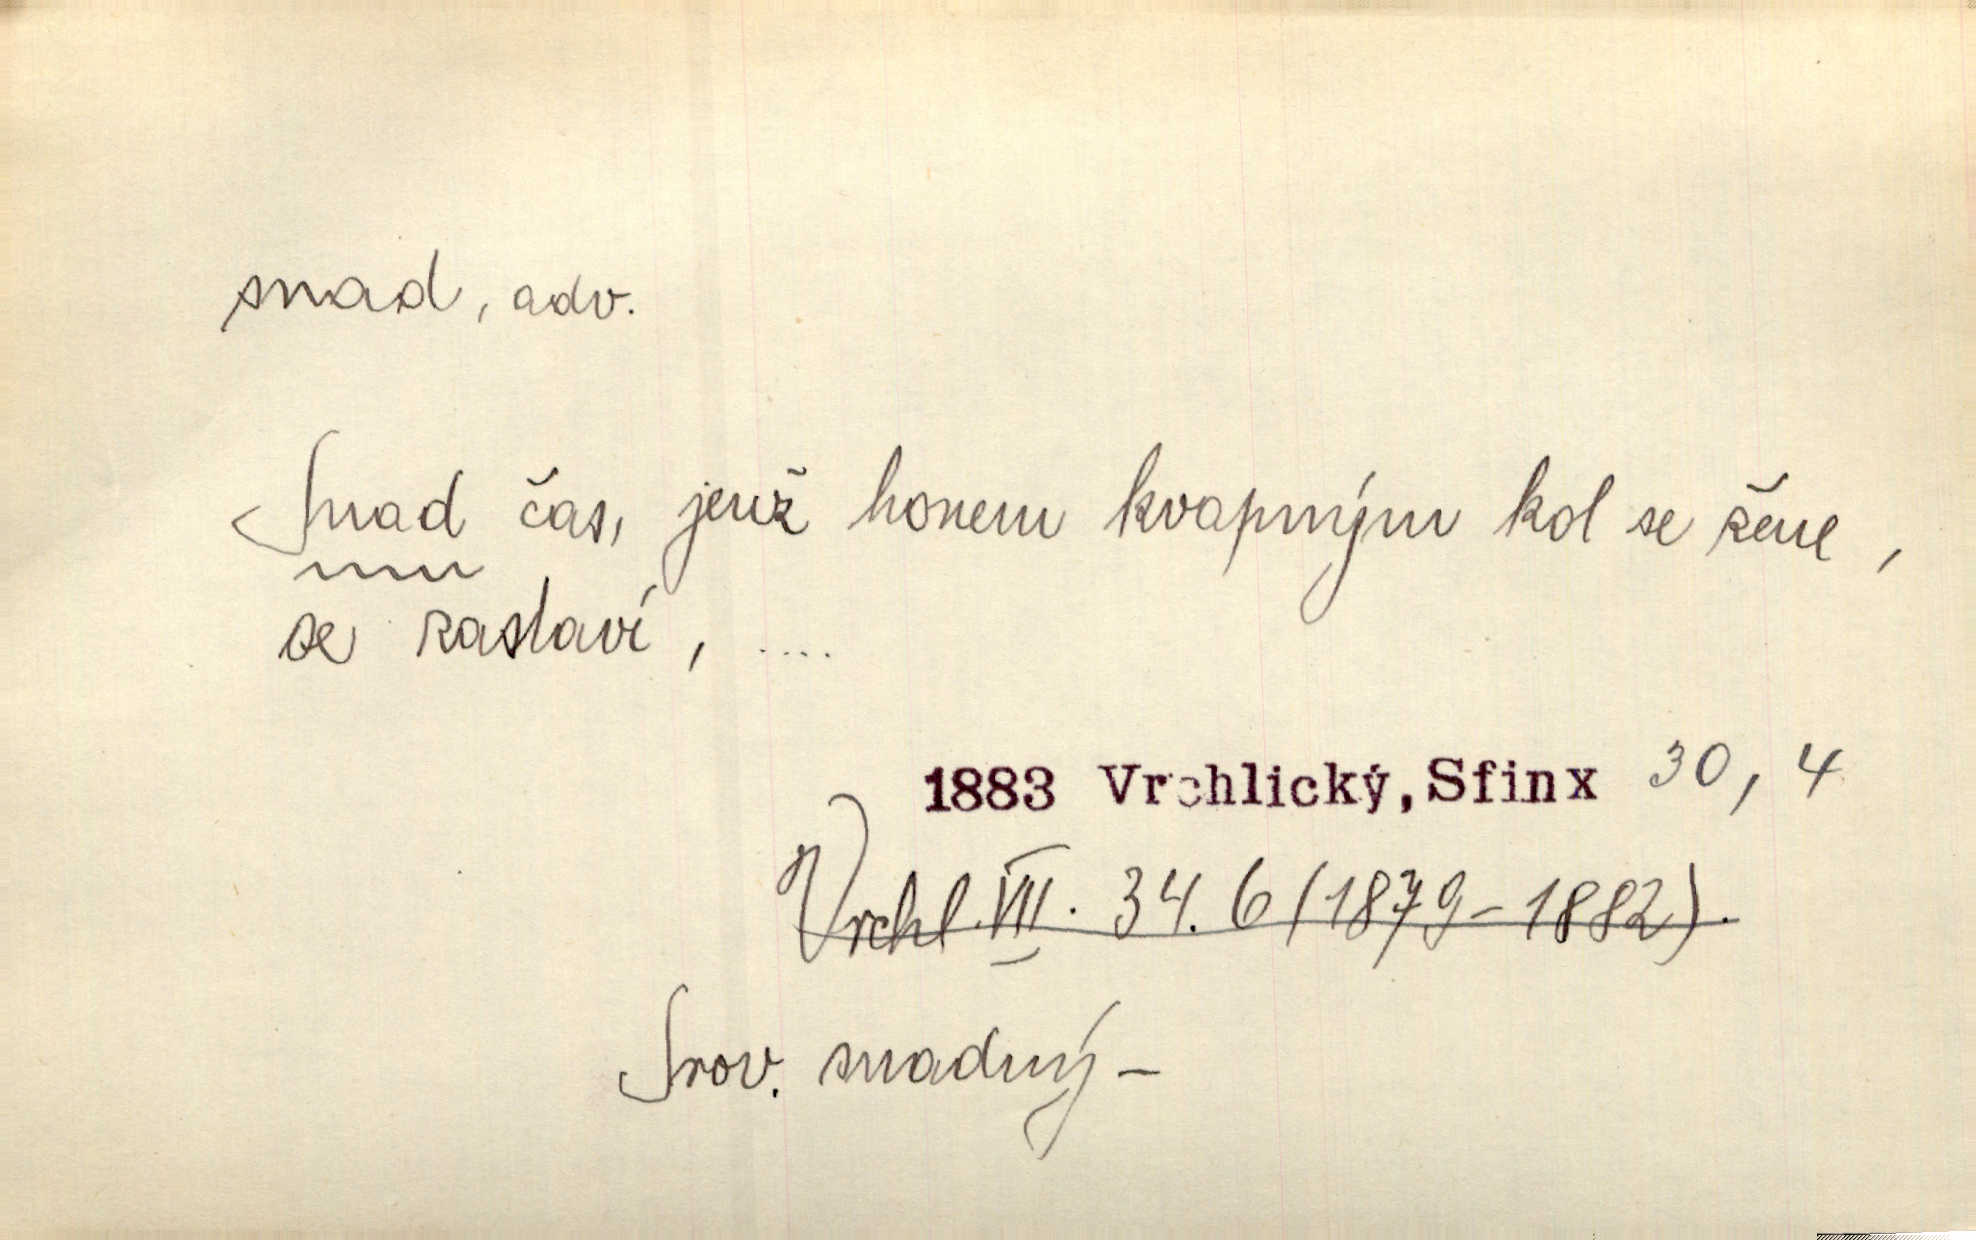 snad, adv.
Snad čas, jenž honem kvapným kol se žene,
se zastaví, ....
1883 Vrchlický, Sfinx 30, 4
Vrchl. VII. 34. 6 (1879-1882).
Srov. snadný -